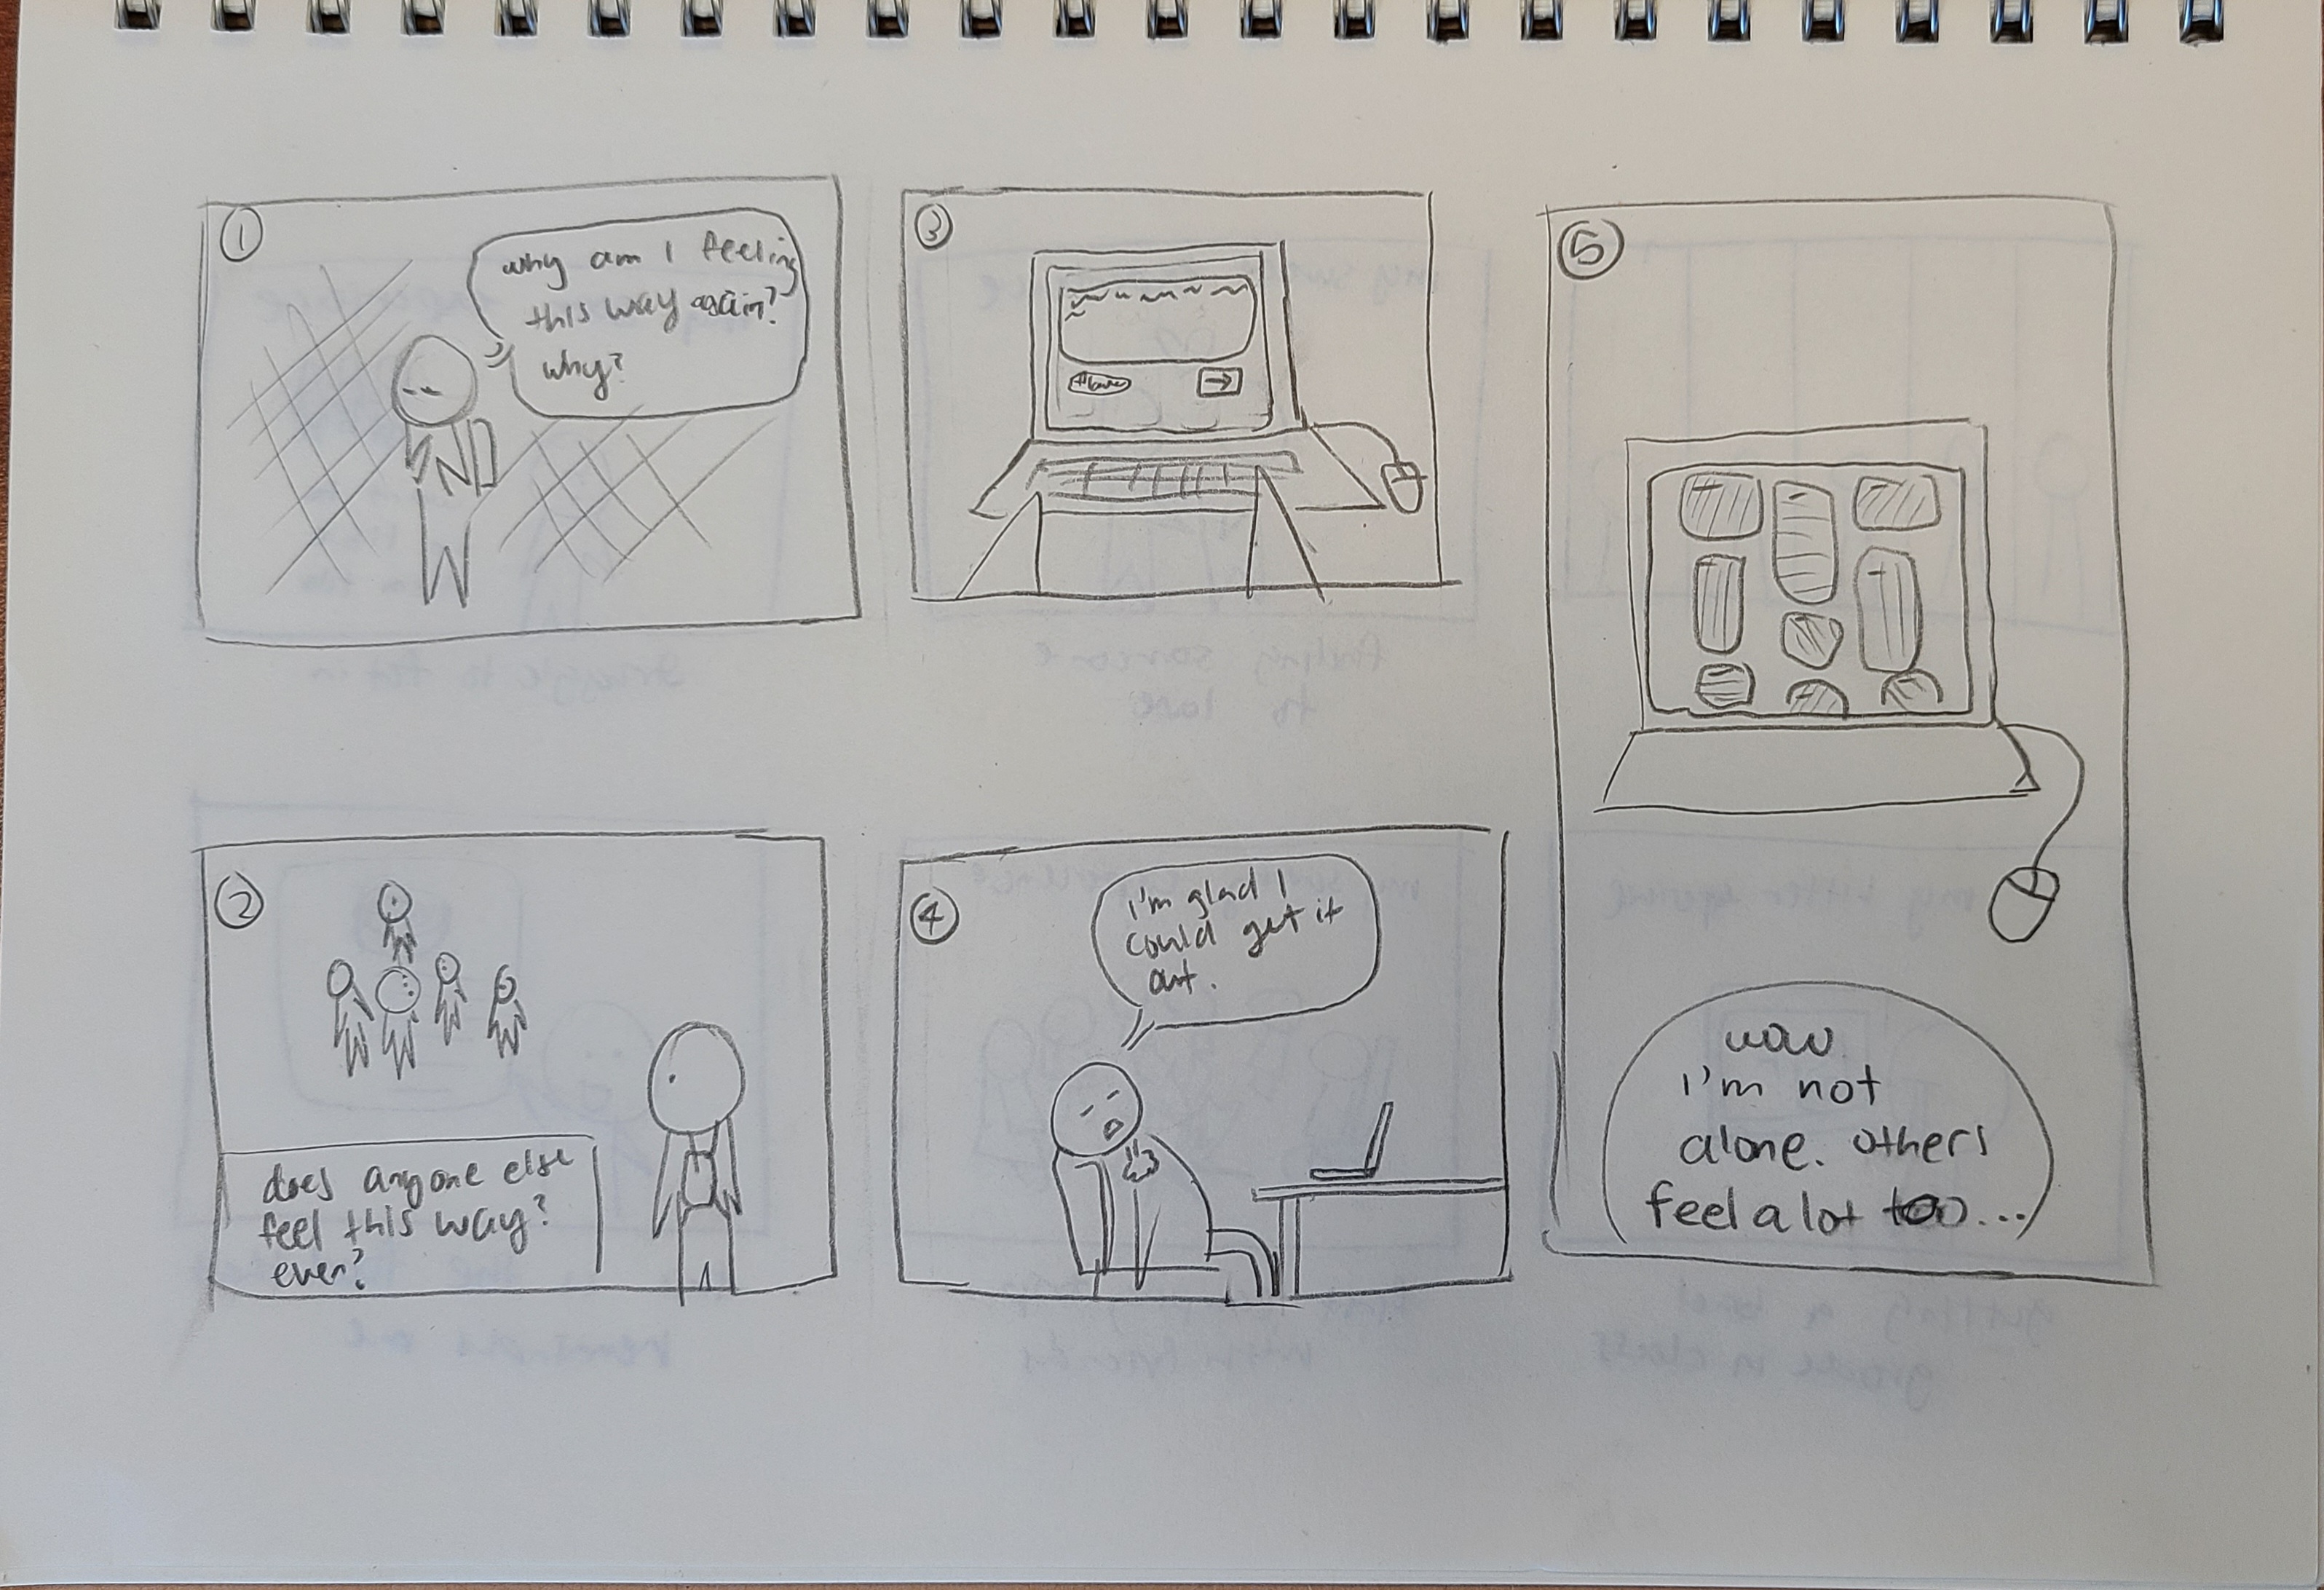 1
why am I feeling
this way again?
why?
2
does anyone else
feel this way?
ever?
3
4
I'm glad I
could get it
out.
5
wow
I'm not
alone. others
feel a lot too...